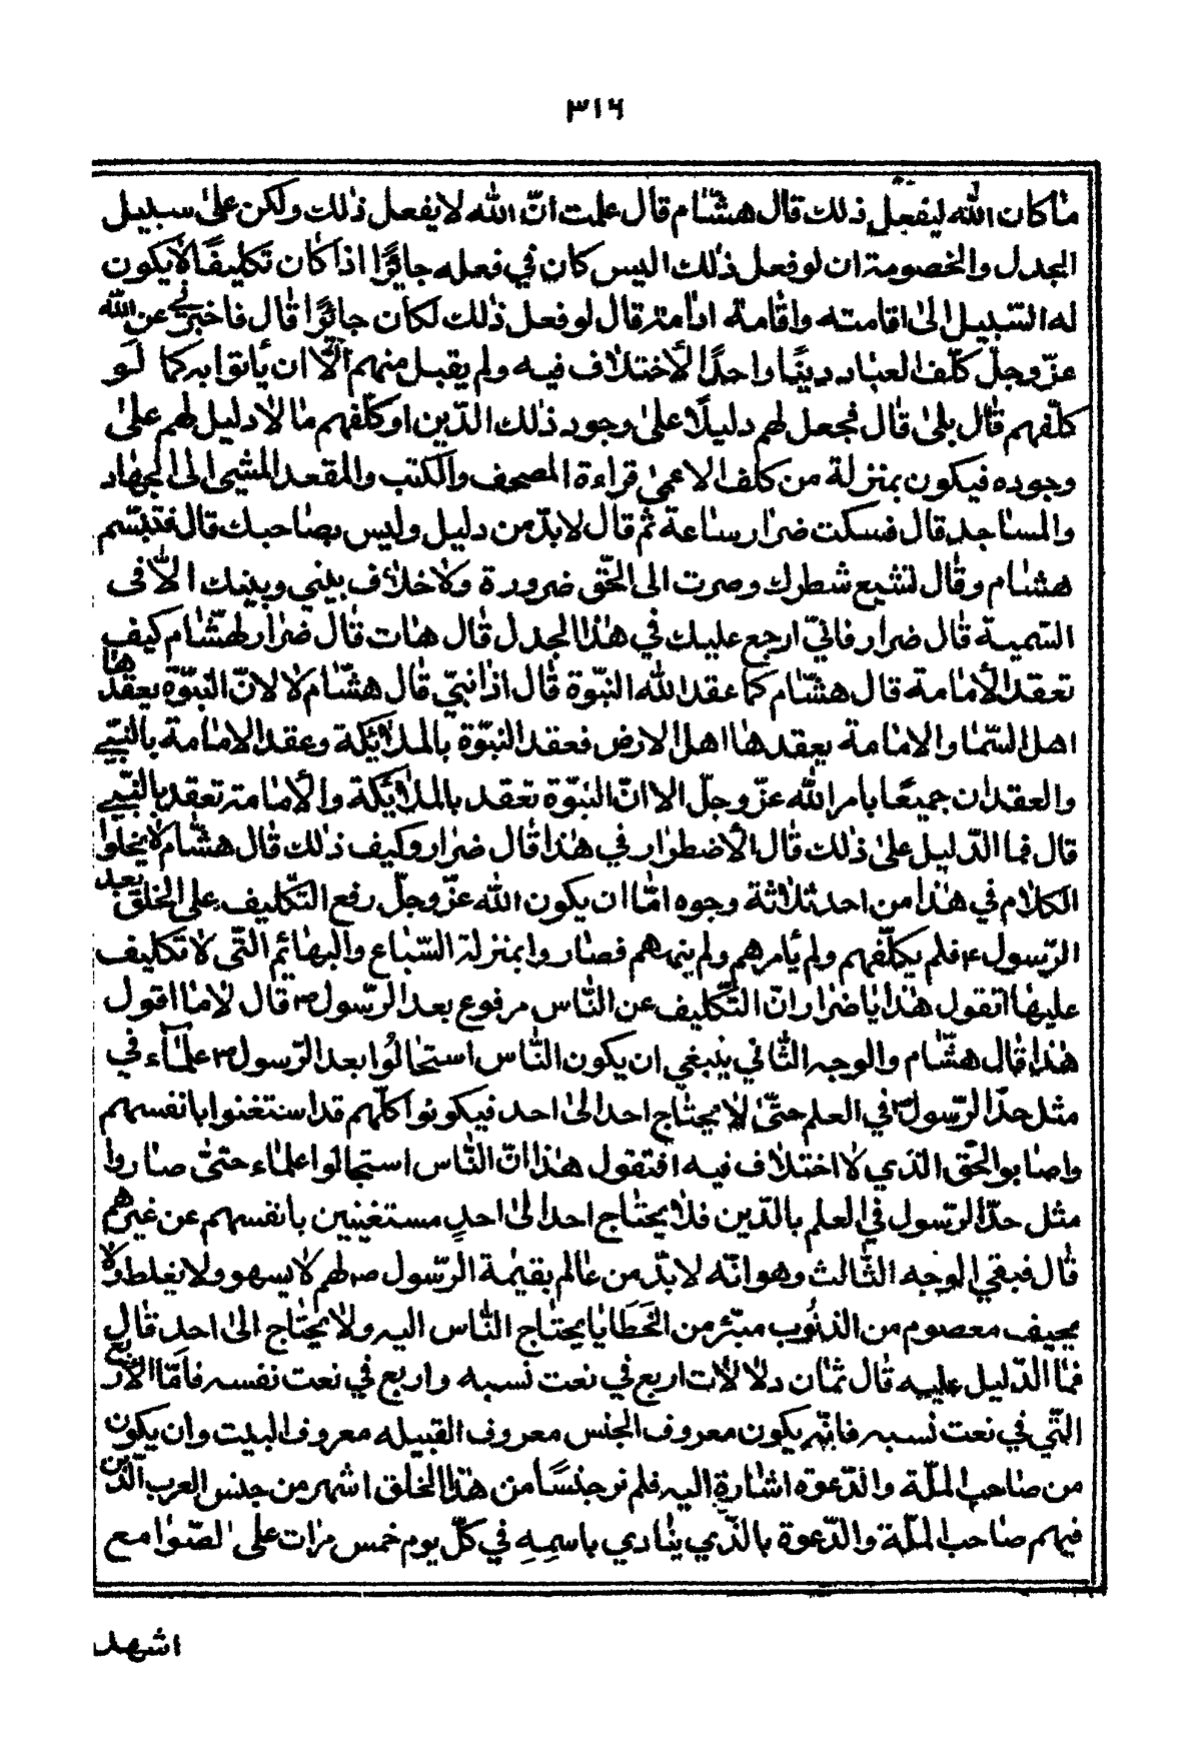 ٣١٦
ما كان الله ليفعل ذلك قال هشام قال علمت انّ الله لا يفعل ذلك ولكن على سبيل
الجدل والخصومة ان لو فعل ذلك اليس كان في فعله جائرًا اذا كان تكليفًا لا يكون
له السّبيل الى اقامته واقامة اداءته قال لو فعل ذلك لكان جائرًا قال فاخبرني عن الله
عزّ وجلّ كلّف العباد دينًا واحدًا لا اختلاف فيه ولم يقبل منهم الّا ان يأتوا به كما لو
كلّفهم قال بلى قال فجعل لهم دليلًا على وجود ذلك الدّين او كلّفهم ما لا دليل لهم على
وجوده فيكون بمنزلة من كلف الاعمى قراءة المصحف والكتب والمقعد المشي الى الجهاد
والمساجد قال فسكت ضرار ساعة ثمّ قال لا بدّ من دليل وليس بصاحبك قال فتبسّم
هشام وقال تشيع شطرك وصرت الى الحّق ضرورة ولا خلاف بيني وبينك الّا في
التسمية قال ضرار فانّي ارجع عليك في هذا الجدل قال هات قال ضرار لهشّام كيف
تعقد الأمامة قال هشّام كما عقد الله النبّوة قال اذا نبيّ قال هشّام لا لانّ النّبوّة يعقدها
اهل السّما والامامة يعقدها اهل الارض فعقد النبّوة بالملائكة وعقد الامامة بالنبّي
والعقدان جميعًا بامر الله عزّ وجلّ الا انّ النبّوة تعقد بالملائكة والأمامة تعقد بالنّبي
قال فما الدّليل على ذلك قال الأضطرار في هذا قال ضرار وكيف ذلك قال هشّام لا يخلوا
الكلام في هذا من احد ثلاثة وجوه امّا ان يكون الله عزّ وجلّ رفع التّكليف على الخلق بعد
الرّسول ع فلم يكلّفهم ولم يأمرهم ولم ينههم فصاروا بمنزلة السّباع والبهائم التّى لا تكليف
عليها اتقول هذا يا ضرار انّ التّكليف عن النّاس مرفوع بعد الرّسول ص قال لا ما اقول
هذا قال هشّام والوجه الثّاني ينبغي ان يكون النّاس استحالُوا بعد الرّسول ص علمآء في
مثل حدّ الرّسول ص في العلم حتّى لا يحتاج احد الى احد فيكونوا كلّهم قد استغنوا بانفسهم
واصابوا الحّق الذي لا اختلاف فيه افتقول هذا انّ النّاس استحالوا علماء حتىّ صاروا
مثل حدّ الرّسول في العلم بالدّين فلا يحتاج احد الى احدٍ مستغنيين بانفسهم عن غيرهم
قال فبقي الوجه الثّالث وهو انّه لا بدّ من عالم بقيمة الرّسول ص لهم لا يسهو ولا يغلط ولا
يحيف معصوم من الذنُوب مبّرء من الخَطَايا يحتاج النّاس اليه ولا يحتاج الى احدٍ قال
فما الدّليل عليه قال ثمان دلالات اربع في نعت نسبه واربع في نعت نفسه فامّا الأربع
التّي في نعت نسبه فانّه يكون معروف الجنس معروف القبيله معروف البيت وان يكون
من صاحب الملّة والدّعوة اشارة اليه فلم نر جنسًا من هذا الخلق اشهر من جنس العرب الّذين
فيهم صاحب الملّة والدّعوة بالّذي ينادي باسمِهِ في كلّ يوم خمس مرّات على الصّوامع
اشهد